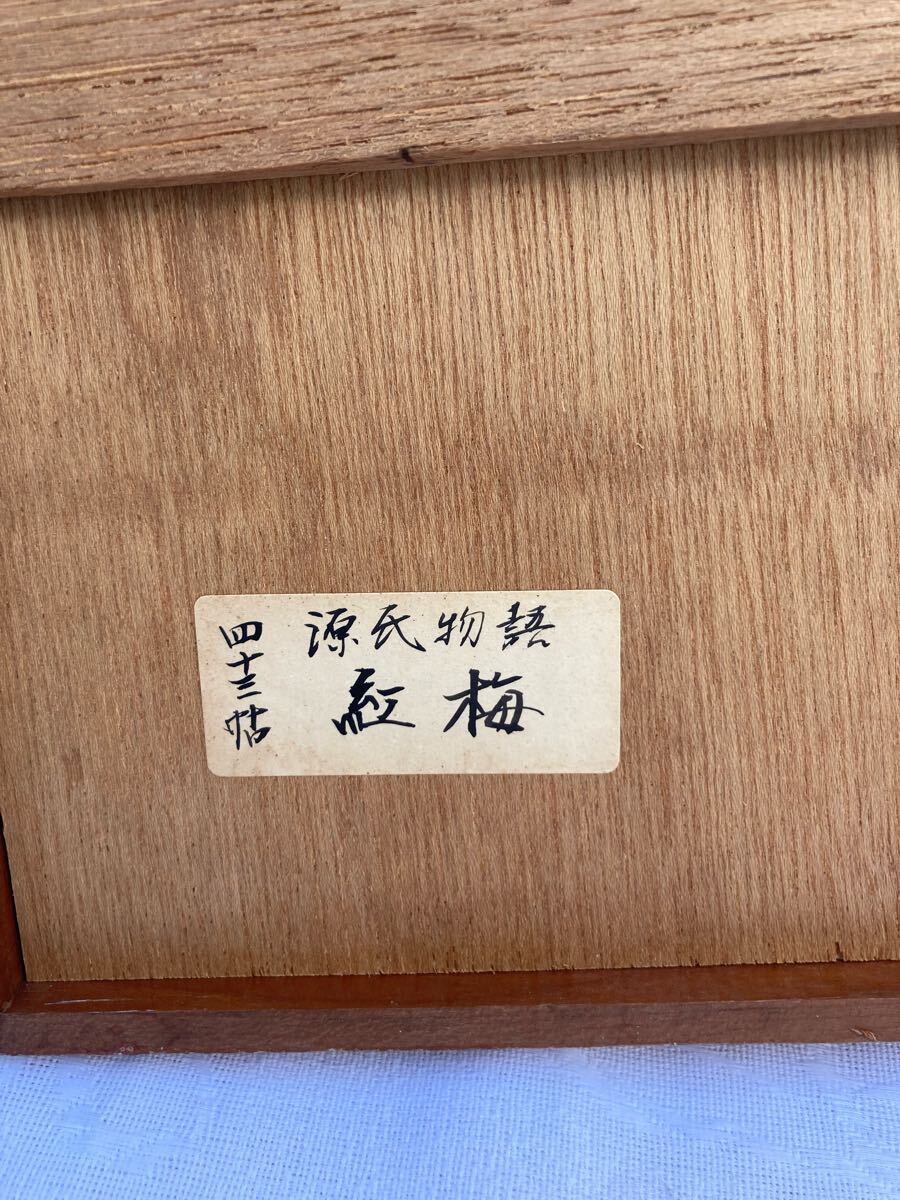 源氏物語
紅梅
四十三帖